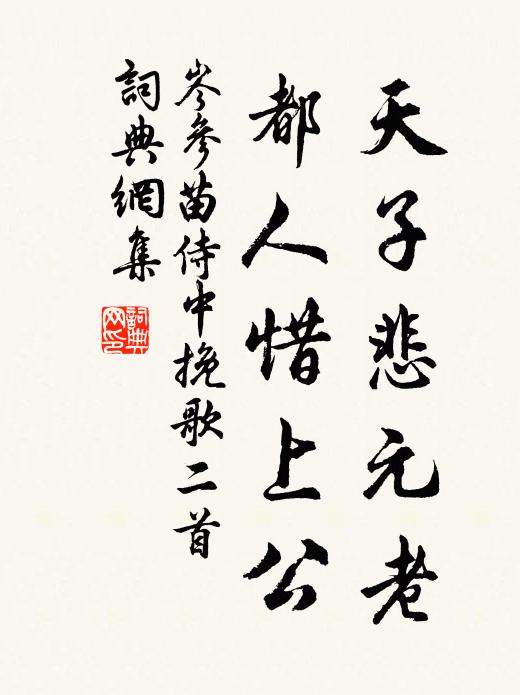 天子悲元老
都人惜上公
岑參苗侍中挽歌二首
詞典網集
詞典网印